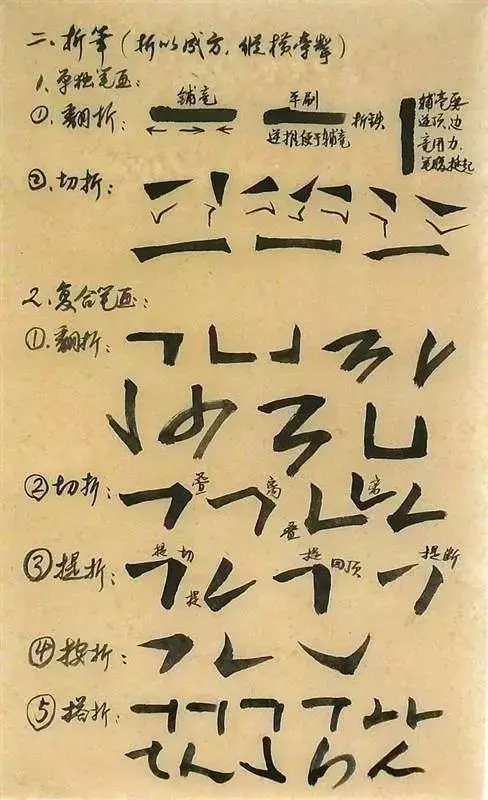 二、折笔(折以成方,纵横牵掣)
1、单独笔画:
①、翻折: 铺毫 平刷 折铁
逆推便于铺毫
铺毫要
逆顶,边
毫用力,
笔腹挺起
②、切折:
2、复合笔画:
①、翻折:
②切折: 叠 离 叠
③提折: 提 切 提 提 回顶 提断
④按折:
⑤搭折: